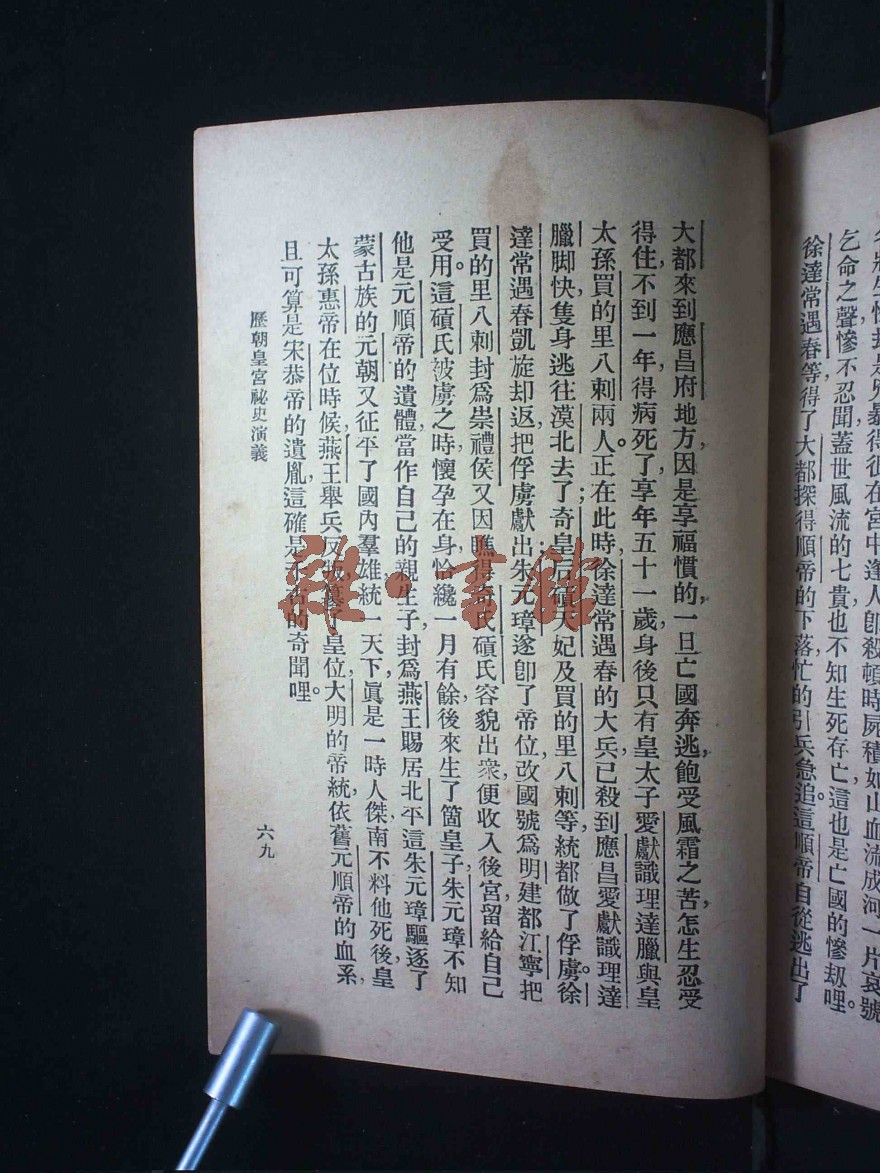 乞命之聲慘不忍聞蓋世風流的七貴也不知生死存亡這也是亡國的慘刼哩。
徐達常遇春等得了大都探得順帝的下落忙的引兵急追。這順帝自從逃出了
大都來到應昌府地方，因是享福慣的，一旦亡國奔逃，飽受風霜之苦，怎生忍受
得住，不到一年，得病死了，享年五十一歲，身後只有皇太子愛猷識理達臘與皇
太孫買的里八剌兩人。正在此時，徐達常遇春的大兵，已殺到應昌，愛猷識理達
臘脚快，隻身逃往漠北去了；奇皇后碩天妃及買的里八剌等，統都做了俘虜。徐
達常遇春凱旋，却返，把俘虜獻出，朱元璋遂卽了帝位，改國號爲明，建都江寧，把
買的里八剌封爲崇禮侯，又因瞧得奇氏碩氏容貌出衆，便收入後宮，留給自己
受用。這碩氏被虜之時，懷孕在身，恰纔一月有餘，後來生了箇皇子，朱元璋不知
他是元順帝的遺體，當作自己的親生子，封爲燕王，賜居北平，這朱元璋驅逐了
蒙古族的元朝，又征平了國內羣雄，統一天下，眞是一時人傑，南不料他死後，皇
太孫惠帝在位時候，燕王舉兵反叛，篡了皇位，大明的帝統，依舊元順帝的血系，
且可算是宋恭帝的遺胤，這確是千古的奇聞哩。
歷朝皇宮祕史演義
六九
雜·書館